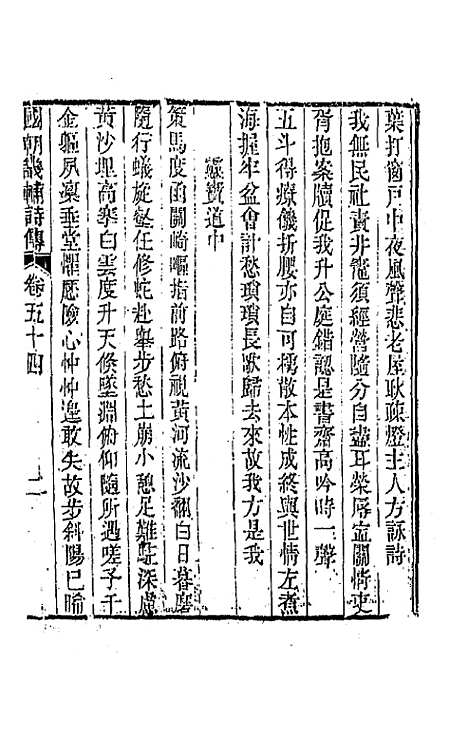 葉打窗戶中夜風聲悲老屋耿疎燈主人方詠詩
我無民社責井竈須經營隨分自盡耳榮辱寧關情吏
胥抱案牘促我升公庭錯認是書齋高吟時一聲
五斗得療饑折腰亦自可稱散本性成終與世情左煮
海握牢盆會計愁瑣瑣長歌歸去來故我方是我
靈寶道中
策馬度函關崎嶇指前路俯視黃河流沙翻白日暮磨
隨行蟻旋壑任修蛇赴舉步愁土崩小憩足難駐深慮
黃沙埋高搴白雲度升天倏墜淵俯仰隨所遇嗟子千
金軀夙稟垂堂懼歷險心忡忡遑敢失故步斜陽已晞
國朝畿輔詩傳 卷五十四 二